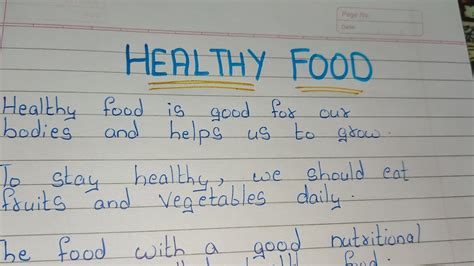 Page No.
Date
HEALTHY FOOD
Healthy food is good for our
bodies and helps us to grow.
To stay healthy, we should eat
fruits and vegetables daily.
The food with a good nutritional
food.